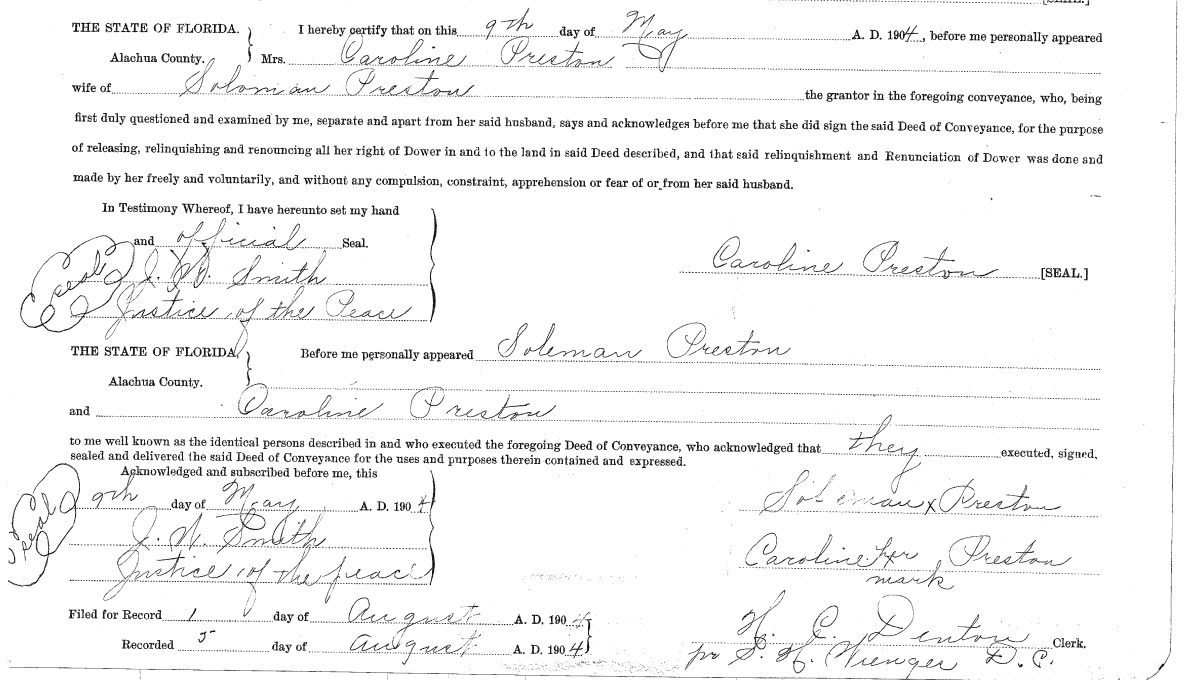 [SEAL.]
THE STATE OF FLORIDA. } I hereby certify that on this 9th day of May A. D. 1904, before me personally appeared
Alachua County. } Mrs. Caroline Preston
wife of Soloman Preston the grantor in the foregoing conveyance, who, being
first duly questioned and examined by me, separate and apart from her said husband, says and acknowledges before me that she did sign the said Deed of Conveyance, for the purpose
of releasing, relinquishing and renouncing all her right of Dower in and to the land in said Deed described, and that said relinquishment and Renunciation of Dower was done and
made by her freely and voluntarily, and without any compulsion, constraint, apprehension or fear of or from her said husband.
In Testimony Whereof, I have hereunto set my hand
and official Seal.
Seal J. N. Smith Caroline Preston [SEAL.]
Justice of the Peace
THE STATE OF FLORIDA, } Before me personally appeared Soleman Preston
Alachua County.
and Caroline Preston
to me well known as the identical persons described in and who executed the foregoing Deed of Conveyance, who acknowledged that they executed, signed,
sealed and delivered the said Deed of Conveyance for the uses and purposes therein contained and expressed.
Acknowledged and subscribed before me, this
Seal 9th day of May A. D. 1904 Soleman x Preston
J. N. Smith
Justice of the peace Caroline her x Preston
mark
Filed for Record 1 day of August A. D. 1904
H. C. Denton Clerk.
Recorded 5 day of August A. D. 1904
pr S. H. Wienger D. C.